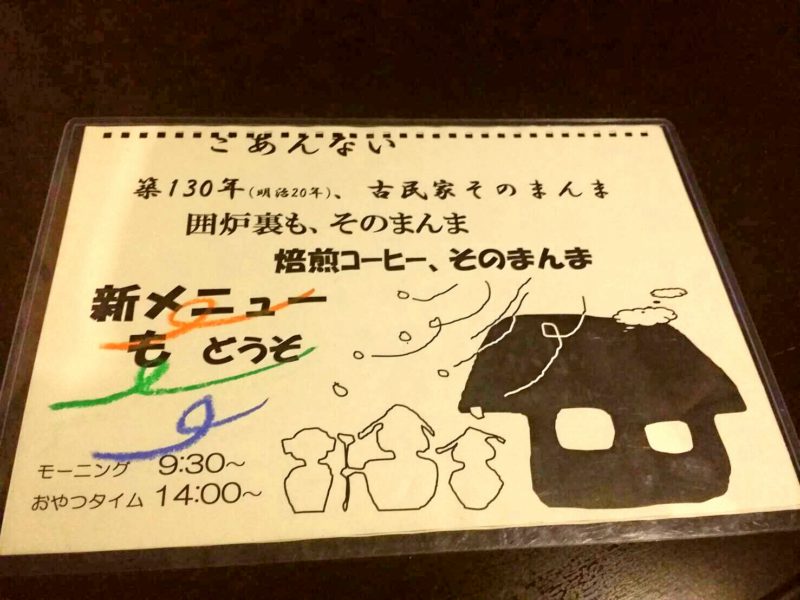 ごあんない
築130年(明治20年)、古民家そのまんま
囲炉裏も、そのまんま
焙煎コーヒー、そのまんま
新メニュー
も どうぞ
モーニング 9:30~
おやつタイム 14:00~